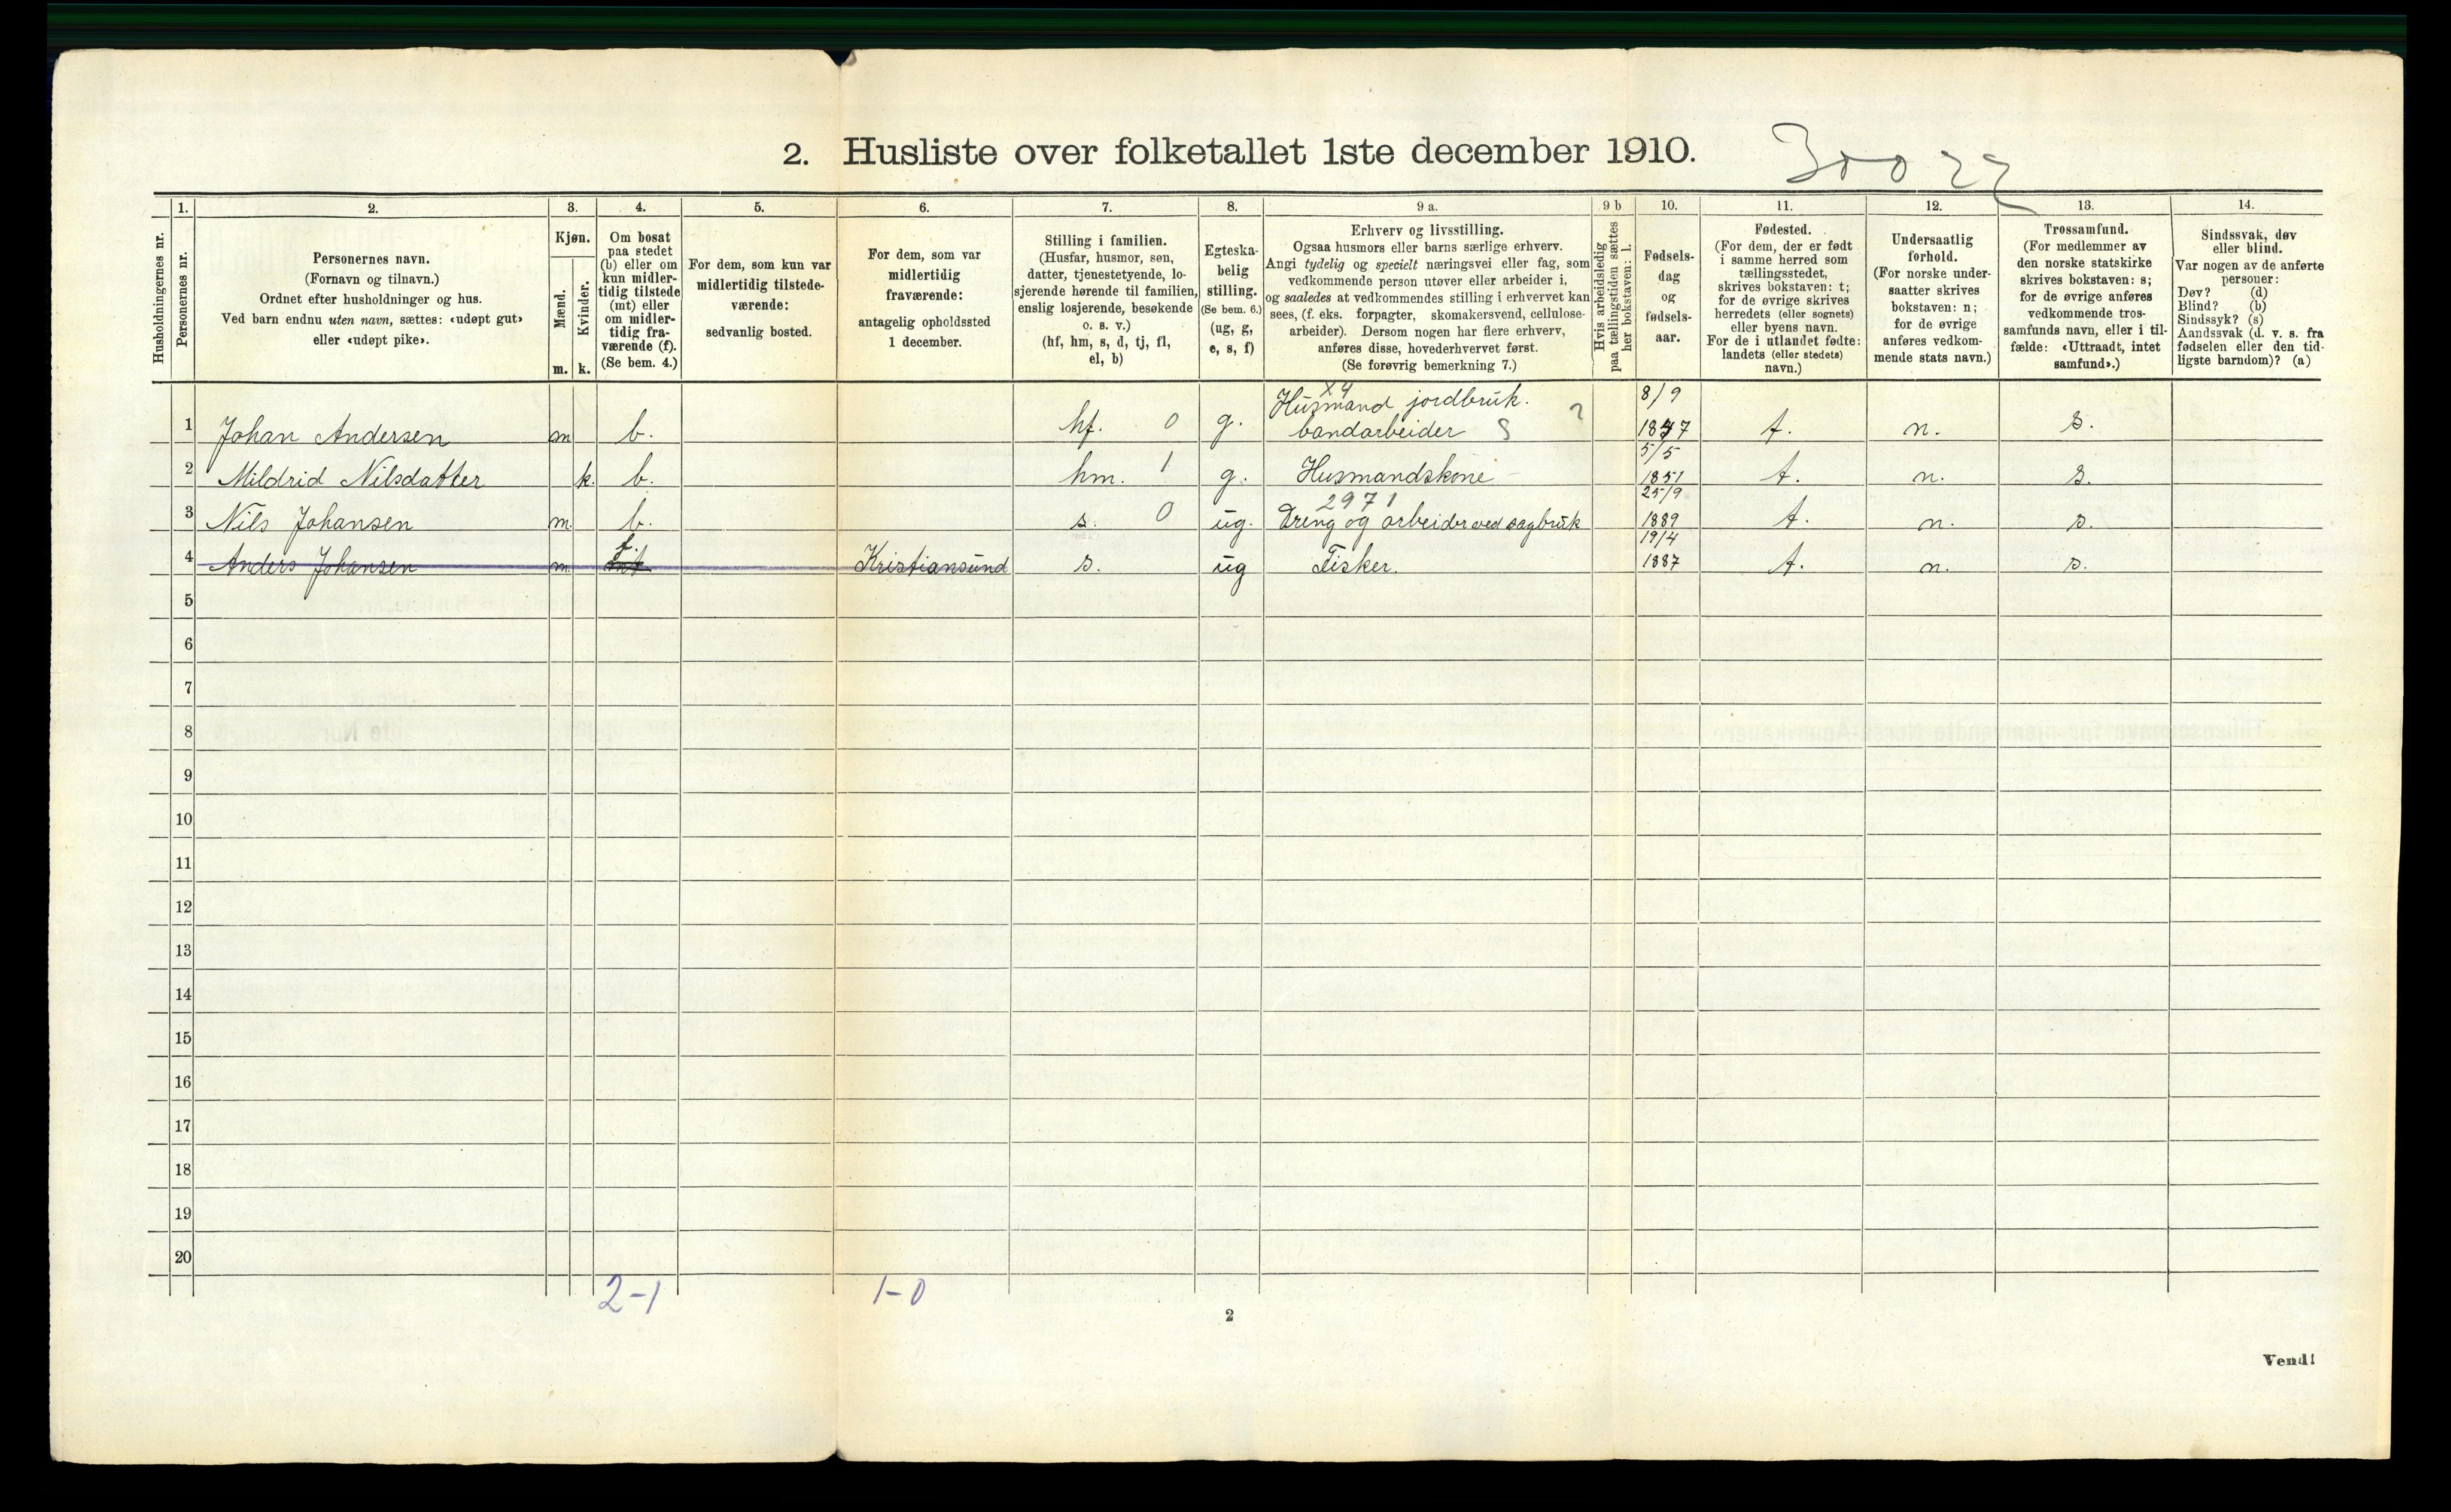 2. Husliste over folketallet 1ste december 1910.
Husholdningernes nr.
1.
Personernes nr.
2.
Personernes navn.
(Fornavn og tilnavn.)
Ordnet efter husholdninger og hus.
Ved barn endnu uten navn, sættes: «udøpt gut»
eller «udøpt pike».
3.
Kjøn.
Mænd.
Kvinder.
m. k.
4.
Om bosat
paa stedet
(b) eller om
kun midler-
tidig tilstede
(mt) eller
om midler-
tidig fra-
værende (f).
(Se bem. 4.)
5.
For dem, som kun var
midlertidig tilstede-
værende:
sedvanlig bosted.
6.
For dem, som var
midlertidig
fraværende:
antagelig opholdssted
1 december.
7.
Stilling i familien.
(Husfar, husmor, søn,
datter, tjenestetyende, lo-
sjerende hørende til familien,
enslig losjerende, besøkende
o. s. v.)
(hf, hm, s, d, tj, fl,
el, b)
8.
Egteska-
belig
stilling.
(Se bem. 6.)
(ug, g,
e, s, f)
9 a.
Erhverv og livsstilling.
Ogsaa husmors eller barns særlige erhverv.
Angi tydelig og specielt næringsvei eller fag, som
vedkommende person utøver eller arbeider i,
og saaledes at vedkommendes stilling i erhvervet kan
sees, (f. eks. forpagter, skomakersvend, cellulose-
arbeider). Dersom nogen har flere erhverv,
anføres disse, hovederhvervet først.
(Se forøvrig bemerkning 7.)
9 b
Hvis arbeidsledig
paa tællingstiden sættes
her bokstaven: l.
10.
Fødsels-
dag
og
fødsels-
aar.
11.
Fødested.
(For dem, der er født
i samme herred som
tællingsstedet,
skrives bokstaven: t;
for de øvrige skrives
herredets (eller sognets)
eller byens navn.
For de i utlandet fødte:
landets (eller stedets)
navn.)
12.
Undersaatlig
forhold.
(For norske under-
saatter skrives
bokstaven: n;
for de øvrige
anføres vedkom-
mende stats navn.)
13.
Trossamfund.
(For medlemmer av
den norske statskirke
skrives bokstaven: s;
for de øvrige anføres
vedkommende tros-
samfunds navn, eller i til-
fælde: «Uttraadt, intet
samfund».)
14.
Sindssvak, døv
eller blind.
Var nogen av de anførte
personer:
Døv? (d)
Blind? (b)
Sindssyk? (s)
Aandssvak (d. v. s. fra
fødselen eller den tid-
ligste barndom)? (a)
x4 8/9
Husmand jordbruk. ?
1 Johan Andersen m b. hf. 0 g. bandarbeider 1847 t. n. s.
5/5
2 Mildrid Nilsdatter k. b. hm. 1 g. Husmandskone 1851 t. n. s.
2971 25/9
3 Nils Johansen m. b. s. 0 ug. Dreng og arbeider ved sagbruk 1889 t. n. s.
f. 19/4
4 Anders Johansen m. mt Kristiansund s. ug Fisker. 1887 t. n. s.
5
6
7
8
9
10
11
12
13
14
15
16
17
18
19
20
2-1 1-0
2
Vend!